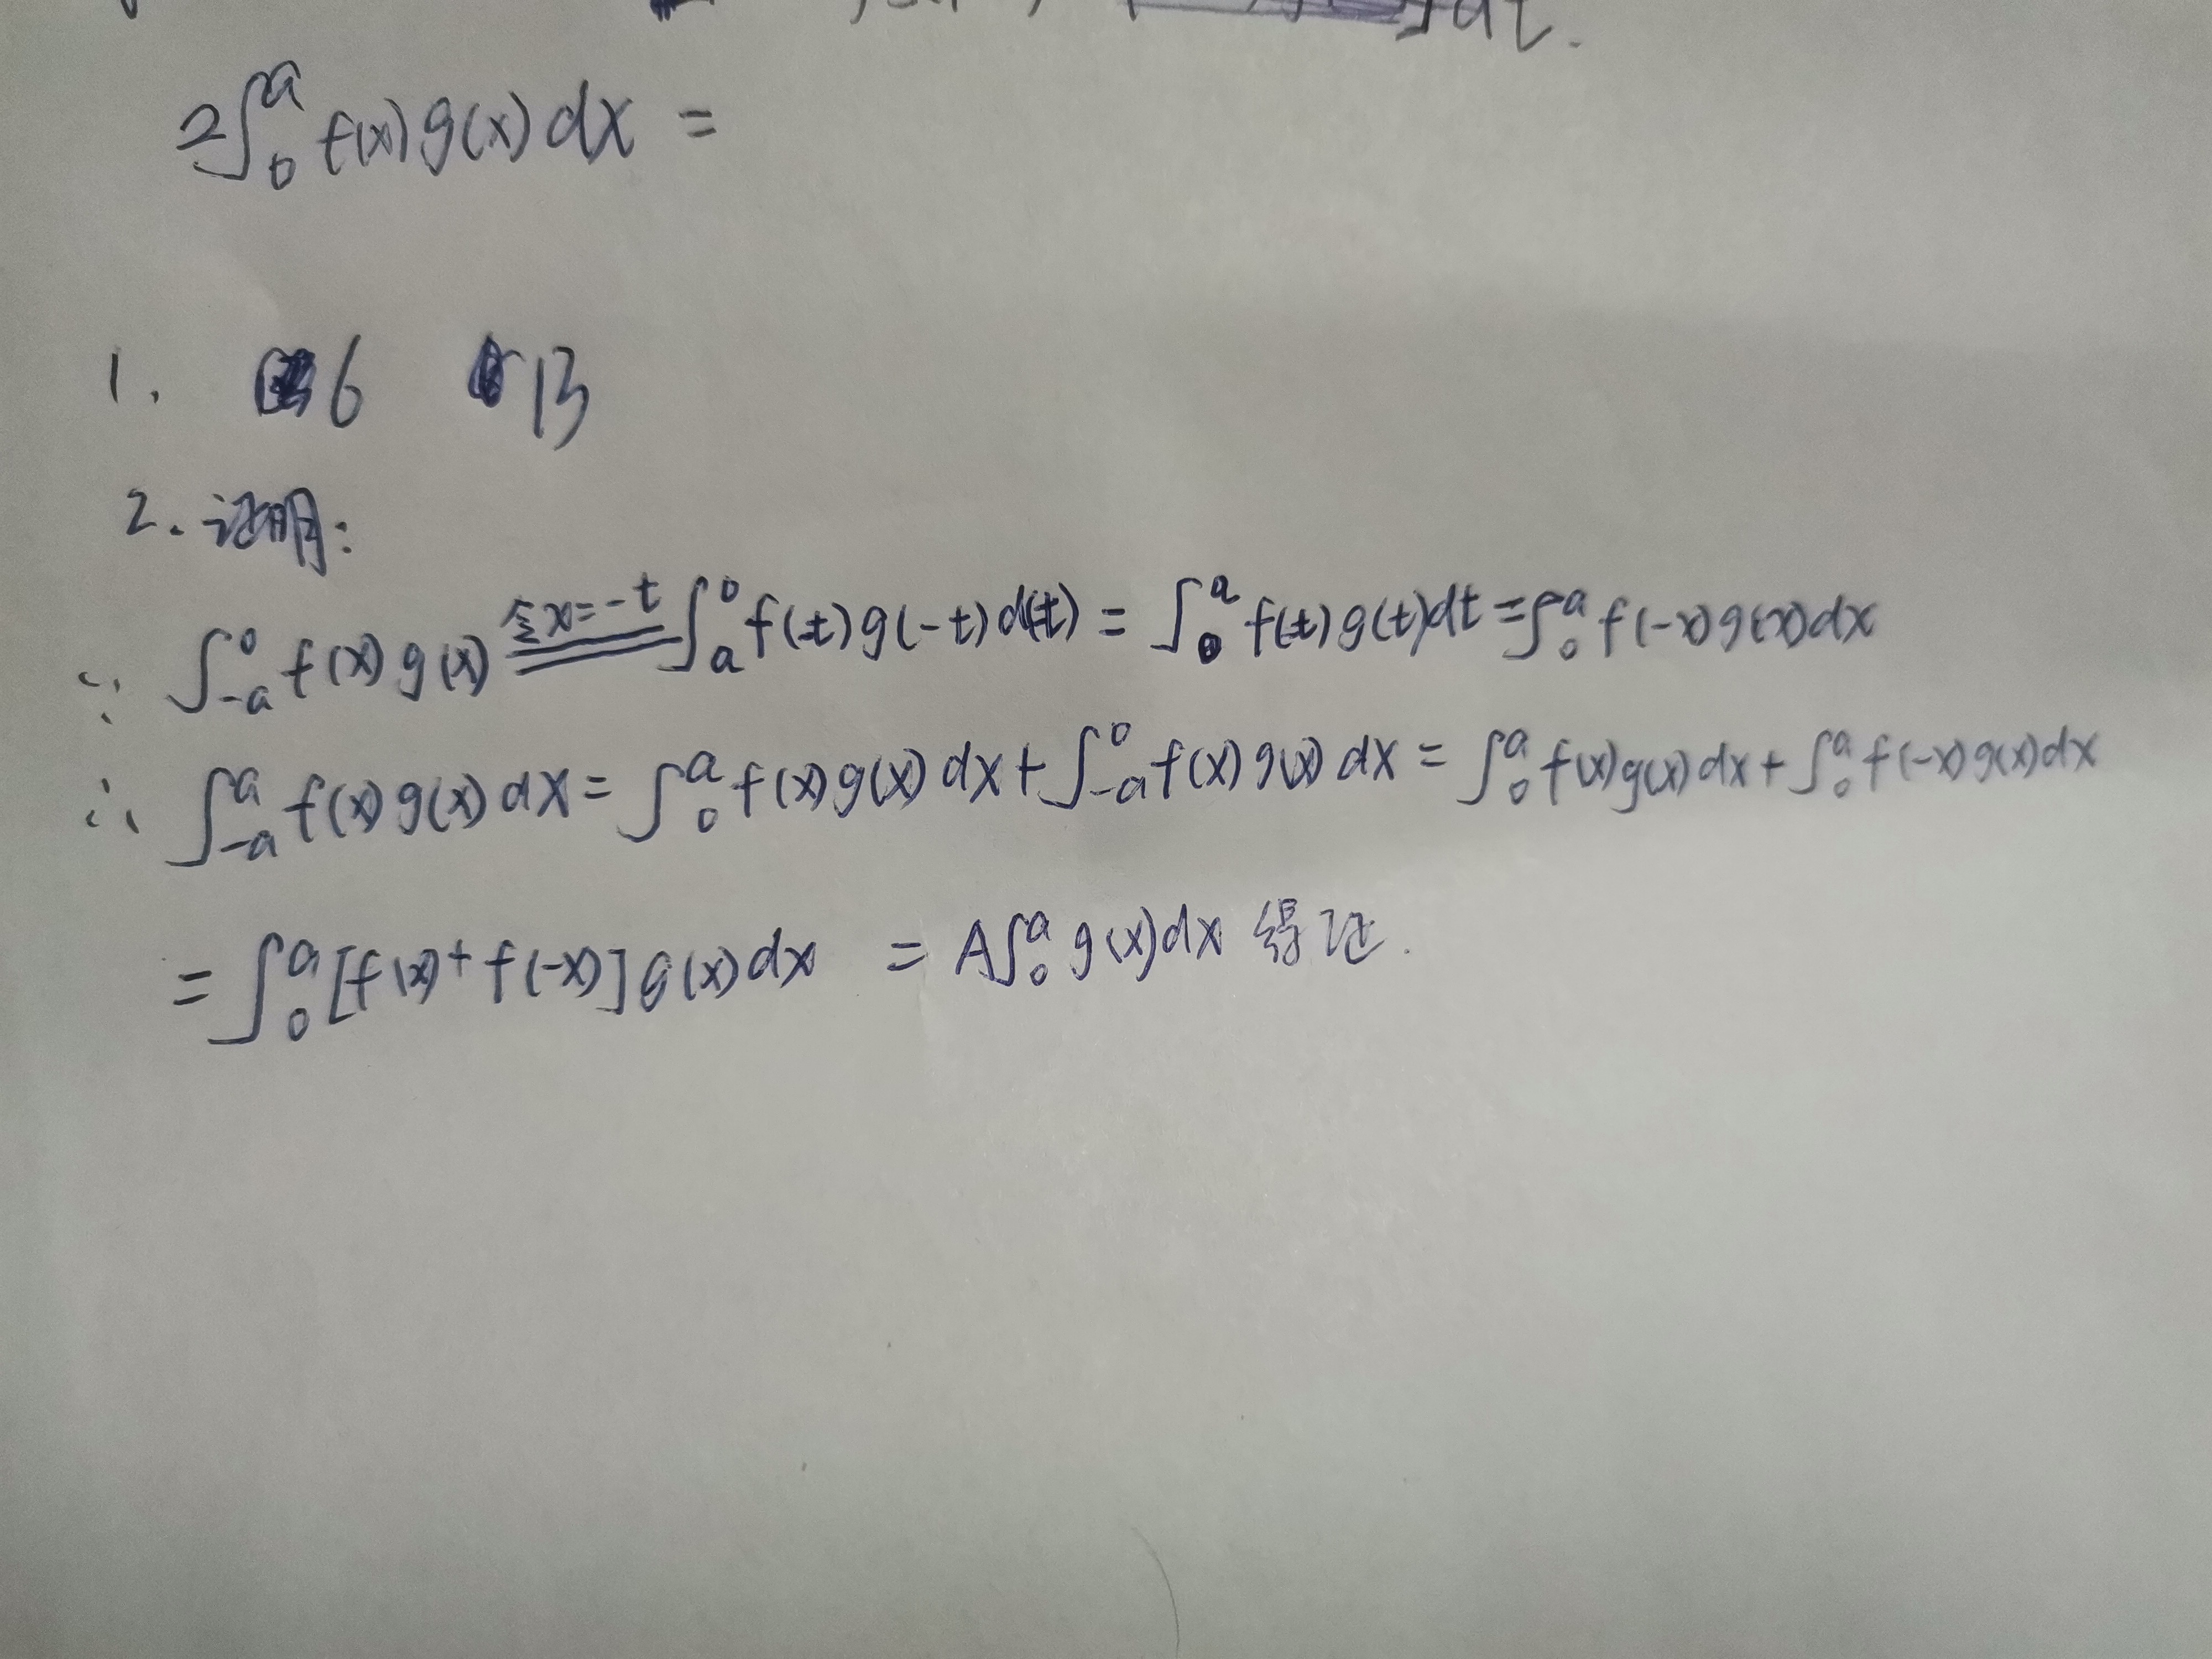 ]dt.
2∫₀ᵃ f(x)g(x)dx =
1. 6 13
2. 证明:
∵ ∫₋ₐ⁰ f(x)g(x) 令x=-t ∫ₐ⁰ f(-t)g(-t)d(-t) = ∫₀ᵃ f(-t)g(t)dt = ∫₀ᵃ f(-x)g(x)dx
∴ ∫₋ₐᵃ f(x)g(x)dx = ∫₀ᵃ f(x)g(x)dx + ∫₋ₐ⁰ f(x)g(x)dx = ∫₀ᵃ f(x)g(x)dx + ∫₀ᵃ f(-x)g(x)dx
= ∫₀ᵃ [f(x)+f(-x)]g(x)dx = A∫₀ᵃ g(x)dx 得证.